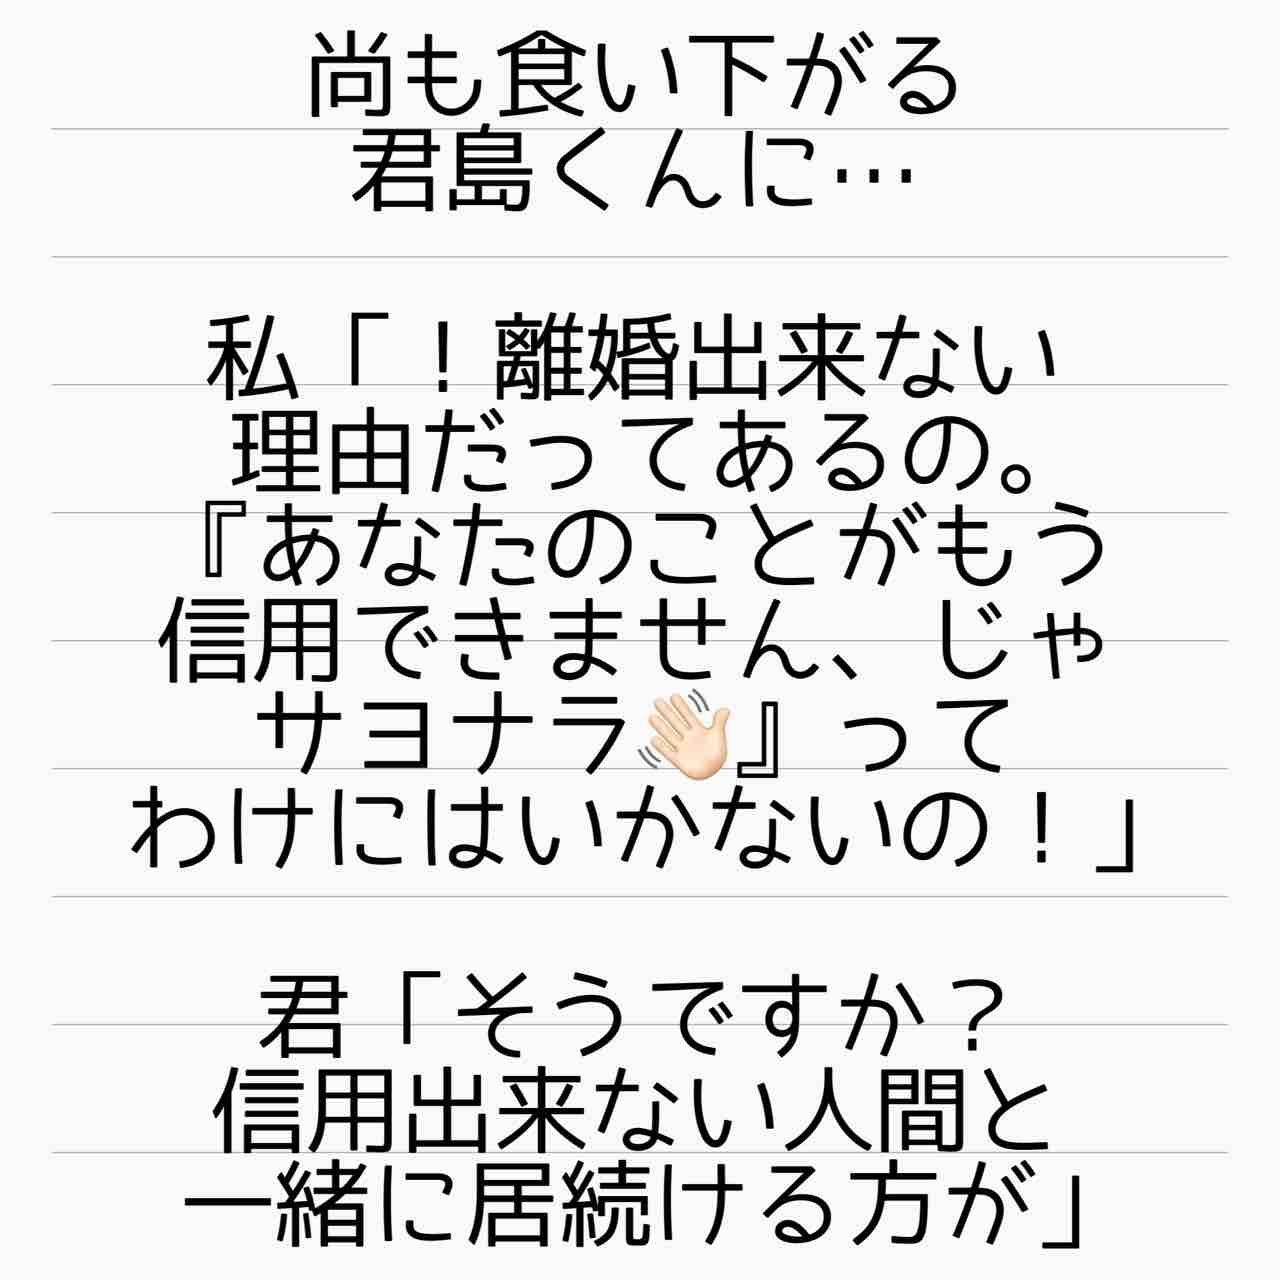 尚も食い下がる
君島くんに…
私「！離婚出来ない
理由だってあるの。
『あなたのことがもう
信用できません、じゃ
サヨナラ👋🏻』って
わけにはいかないの！」
君「そうですか？
信用出来ない人間と
一緒に居続ける方が」